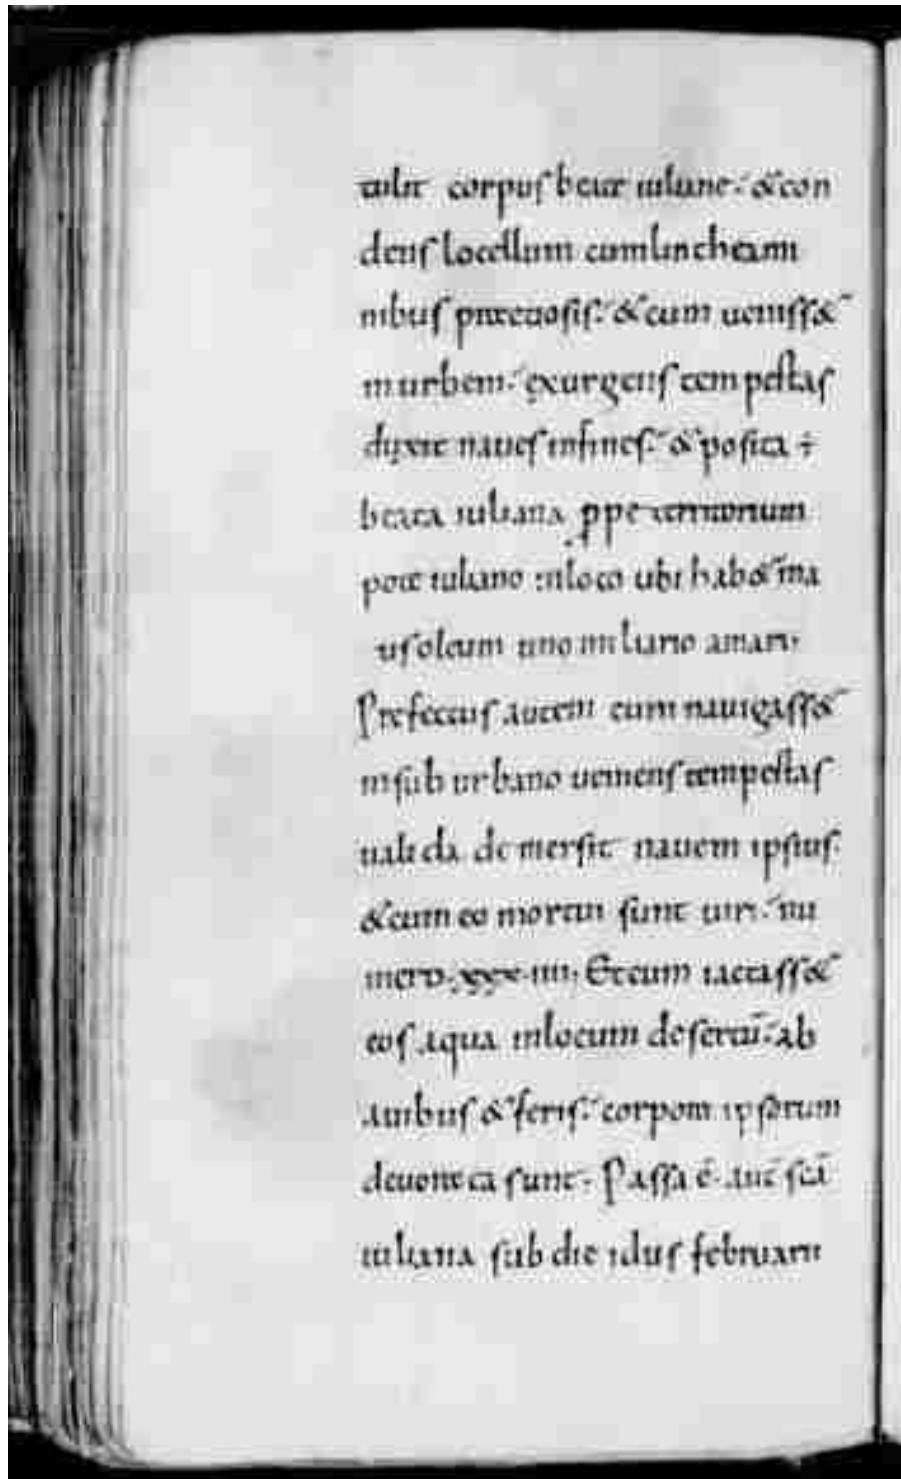 tulit corpus beate iuliane· & con
dens locellum cum linch&ami
nibus praetiosis· & cum veniss&
in urbem· exurgens tempestas
duxit naues in fines· & posita ÷
beata iuliana ꝓpe territorium
pote iulano in loco ubi hab& ma
usoleum uno miliario a mari·
Prefectus autem cum nauigass&
in sub urbano ueniens tempestas
ualida demersit nauem ipsius·
& cum eo mortui sunt uiri· nu
mero· xxx· iiii· Et cum iactass&
eos aqua in locum desertū· ab
auibus & feris· corpora ipsorum
deuorata sunt· Passa ē· aut̄ sc̄a
iuliana sub die idus februarii